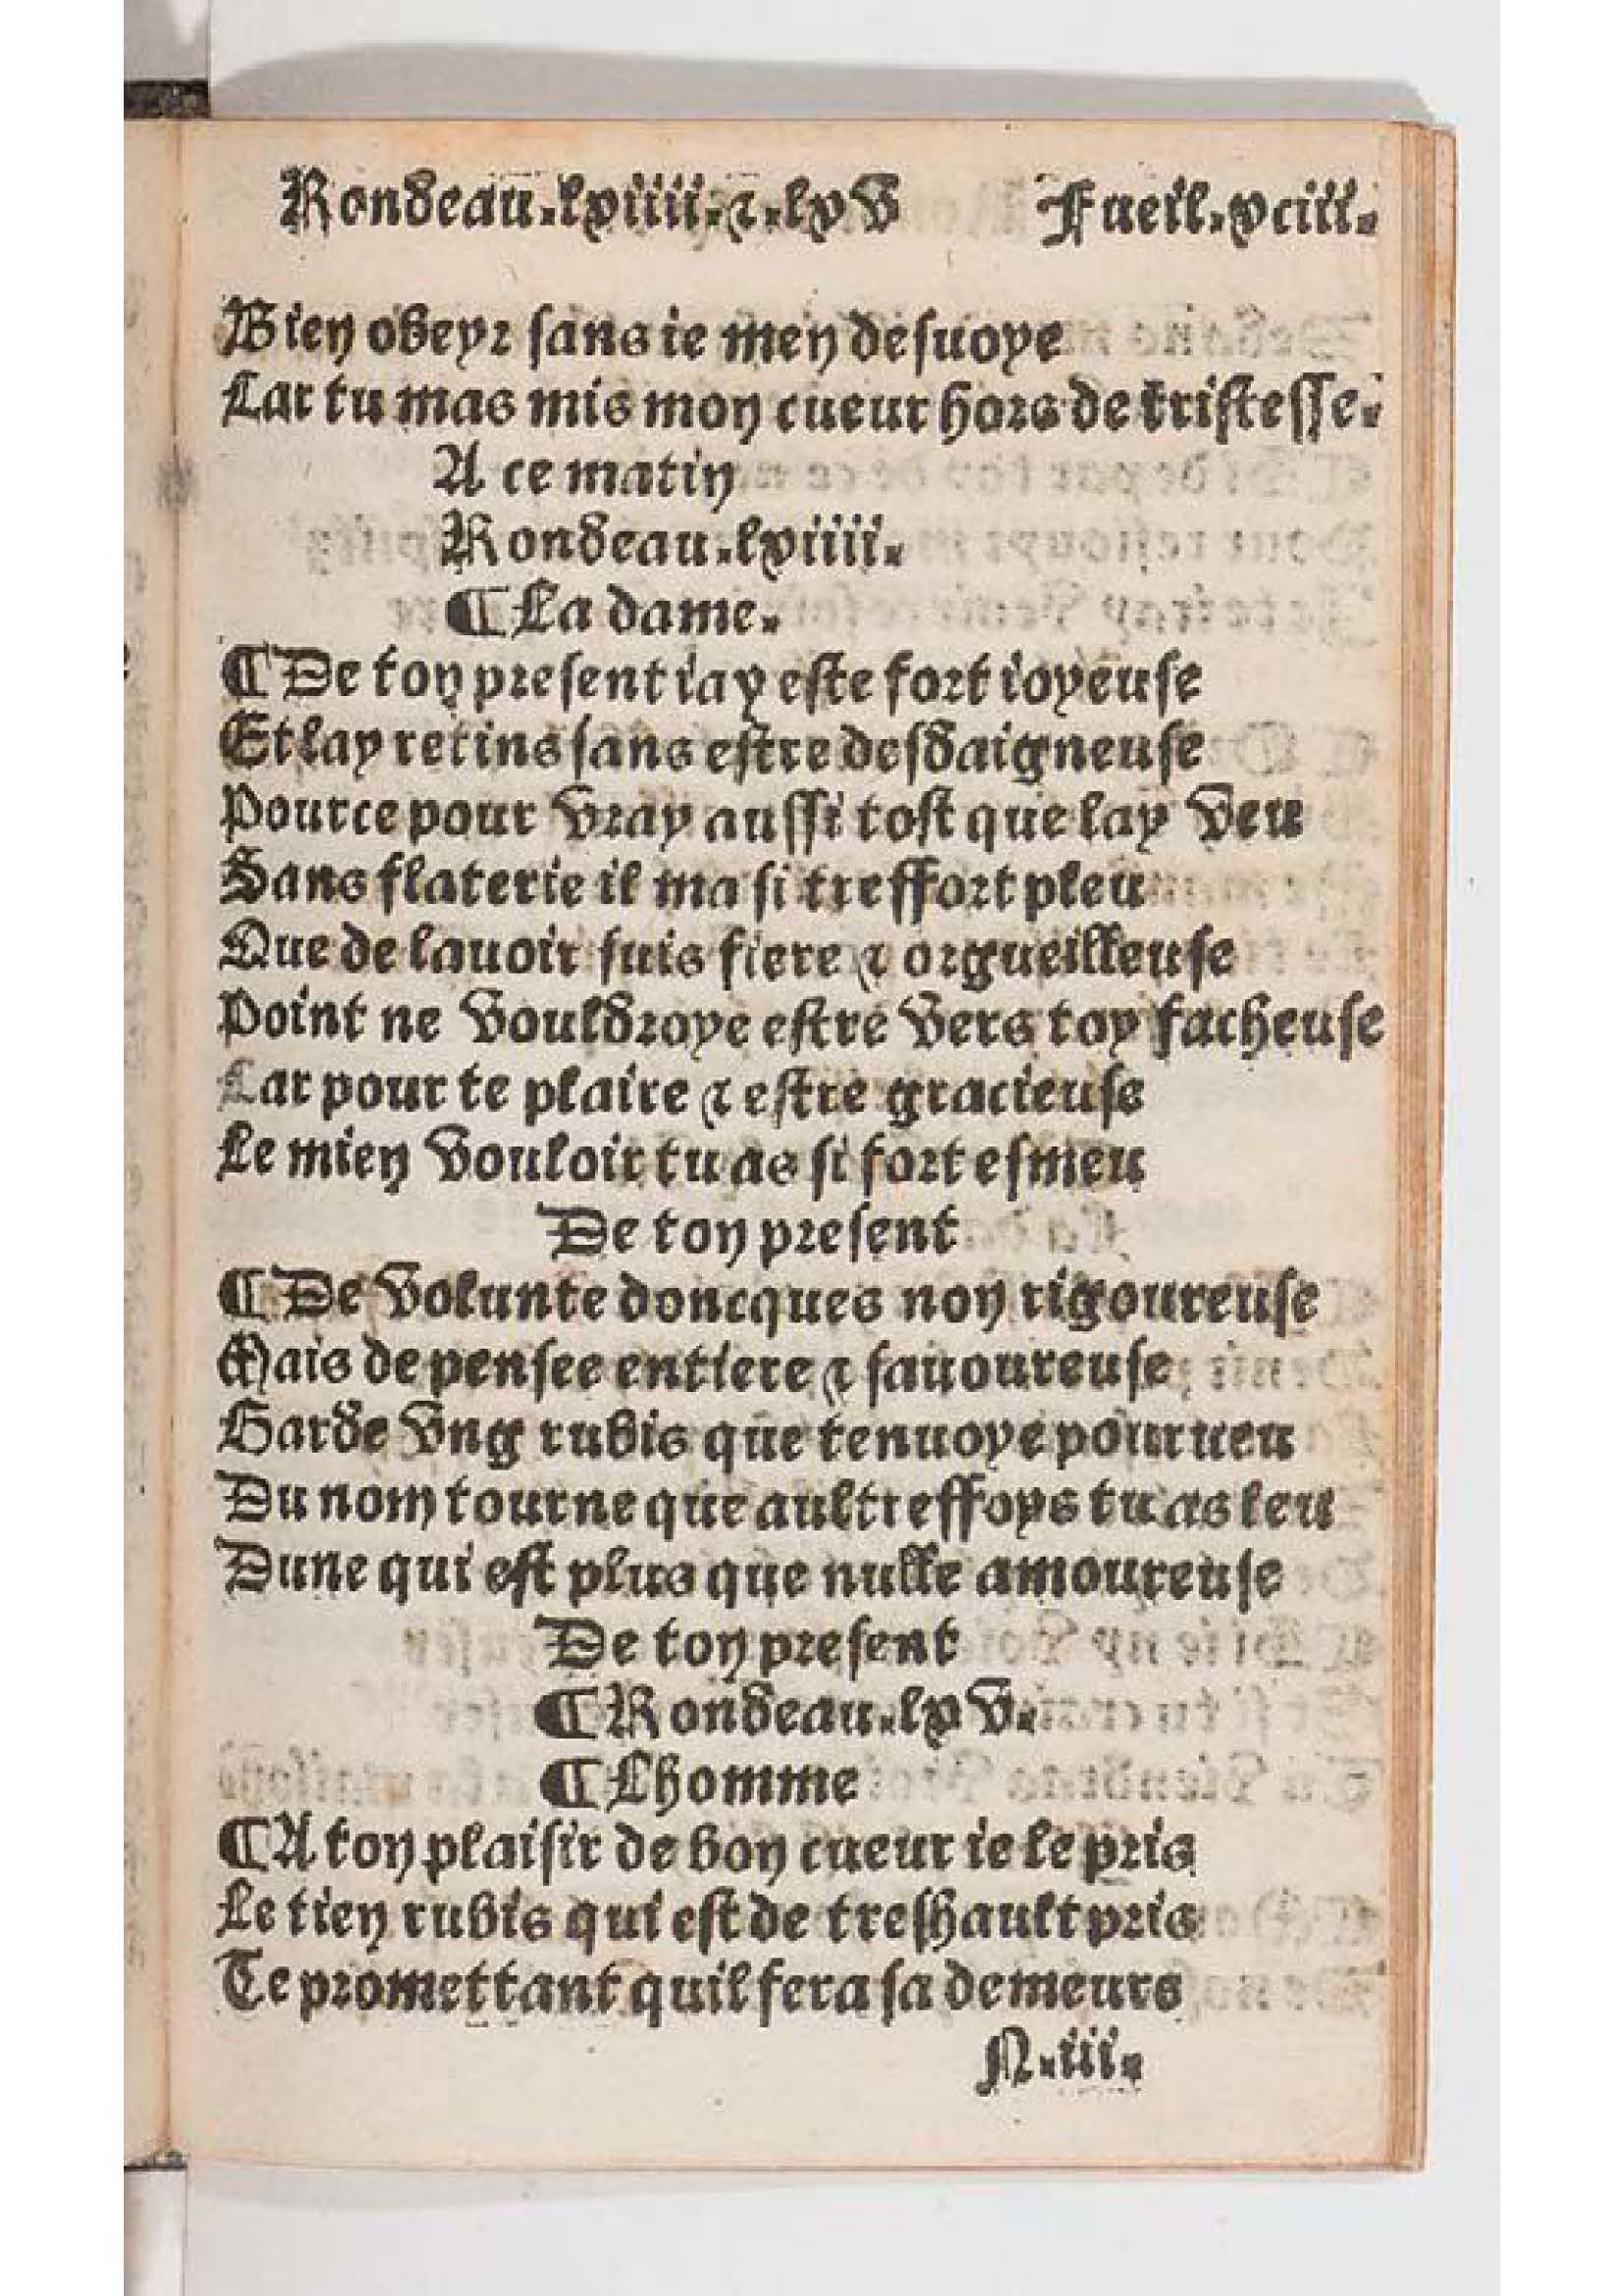 Rondeau.lxiiii.⁊.lxv Fueil.xciii.
Bien obeyr sans ie men desuoye
Car tu mas mis mon cueur hors de tristesse.
A ce matin
Rondeau.lxiiii.
¶La dame.
¶De ton present iay este fort ioyeuse
Et lay retins sans estre desdaigneuse
Pource pour vray aussi tost que lay veu
Sans flaterie il ma si treffort pleu
Que de lauoir suis fiere ⁊ orgueilleuse
Point ne vouldroye estre vers toy facheuse
Car pour te plaire ⁊ estre gracieuse
Le mien vouloir tu as si fort esmeu
De ton present
¶De volunte doncques non rigoureuse
Mais de pensee entiere ⁊ sauoureuse
Garde vng rubis que tenuoye pourueu
Du nom tourne que aultreffoys tu as leu
Dune qui est plus que nulle amoureuse
De ton present
¶Rondeau.lxv.
¶Lhomme
¶A ton plaisir de bon cueur ie le pris
Le tien rubis qui est de treshault pris
Te promettant quil fera sa demeure
N.iii.